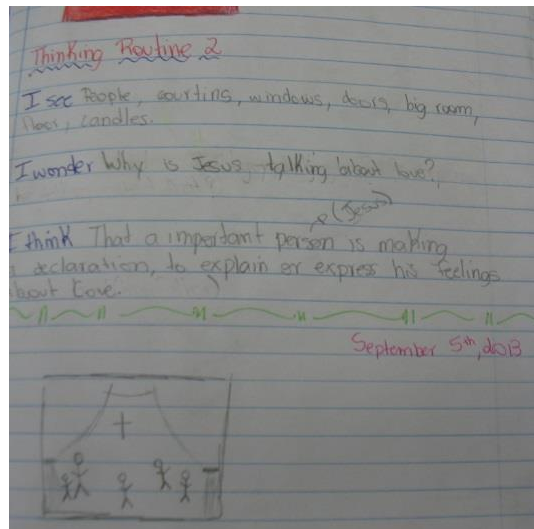 Thinking Routine 2
I see People, courtins, windows, doors, big room,
floor, candles.
I wonder Why is Jesus talking about love?
(Jesus)
I think That a important person is making
a declaration, to explain or express his feelings
about Love.
September 5th, 2013